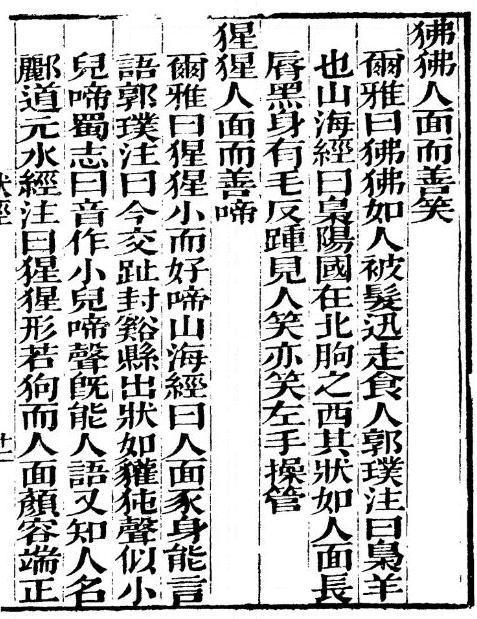 狒狒人面而善笑
爾雅曰狒狒如人被髮迅走食人郭璞注曰梟羊
也山海經曰梟陽國在北朐之西其狀如人面長
脣黑身有毛反踵見人笑亦笑左手操管
猩猩人面而善啼
爾雅曰猩猩小而好啼山海經曰人面豕身能言
語郭璞注曰今交趾封谿縣出狀如貛㹠聲似小
兒啼蜀志曰音作小兒啼聲旣能人語又知人名
酈道元水經注曰猩猩形若狗而人面顏容端正